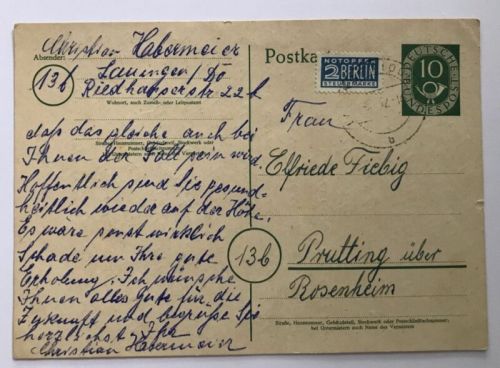 Absender:
Christian Habermeier
13b
Lauingen/Do
Riedhauserstr 22b
Wohnort, auch Zustell- oder Leitpostamt
Straße, Hausnummer, Gebäudeteil, Stockwerk oder
Postschließfachnummer;
bei Untermietern auch Name des Vermieters
daß das gleiche auch bei
Ihnen der Fall sein wird.
Hoffentlich sind Sie gesund-
heitlich wieder auf der Höhe.
Es wäre sonst wirklich
Schade um Ihre gute
Erholung. Ich wünsche
Ihnen alles gute für die
Zukunft und begrüße Sie
herzlichst Ihr
Christian Habermeier
Postka
NOTOPFER
2 BERLIN
STEUERMARKE
DEUTSCHE
10
BUNDESPOST
b
Frau
Elfriede Fiebig
13b
Prutting über
Rosenheim
Straße, Hausnummer, Gebäudeteil, Stockwerk oder Postschließfachnummer;
bei Untermietern auch Name des Vermieters